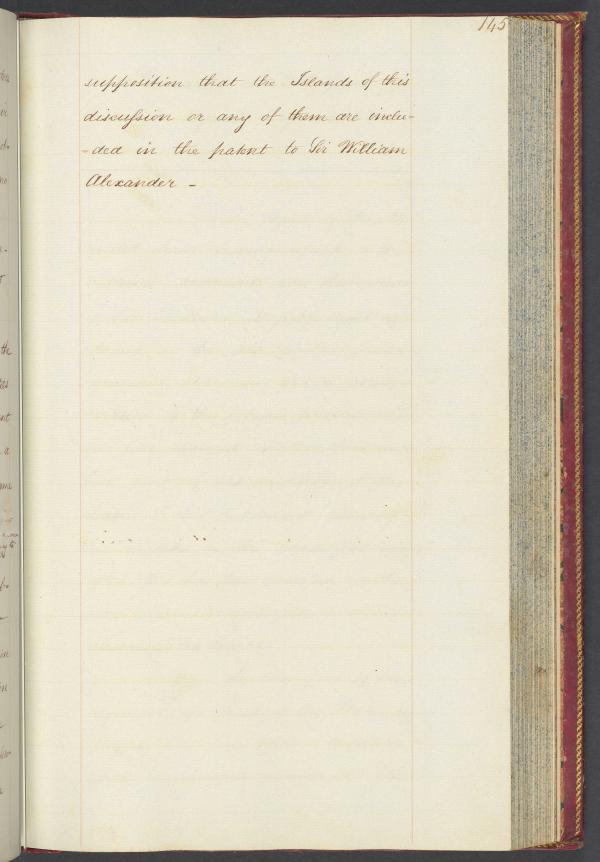 145
supposition that the Islands of this
discussion or any of them are inclu-
-ded in the patent to Sir William
Alexander -